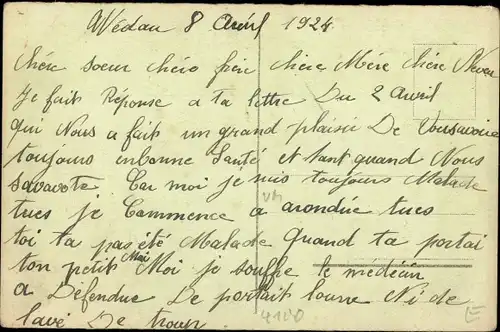 Wédau 8 Avril 1924
chére soeur chéro frér chére Mére chére Neveu
Je fait Réponse a ta lettre Du 2 avril
qui Nous a fait un grand plaisir De Vousavoire
toujours enbonne Santé et tant quand Nous
savavote Car moi je suis toujours Malade
tues je Commence a arondue tues
toi ta pas été Malade quand ta portai
ton petit Mai Moi je souffre le médécin
a Défendue De portait lourre Ni de
lavé De trour
4120